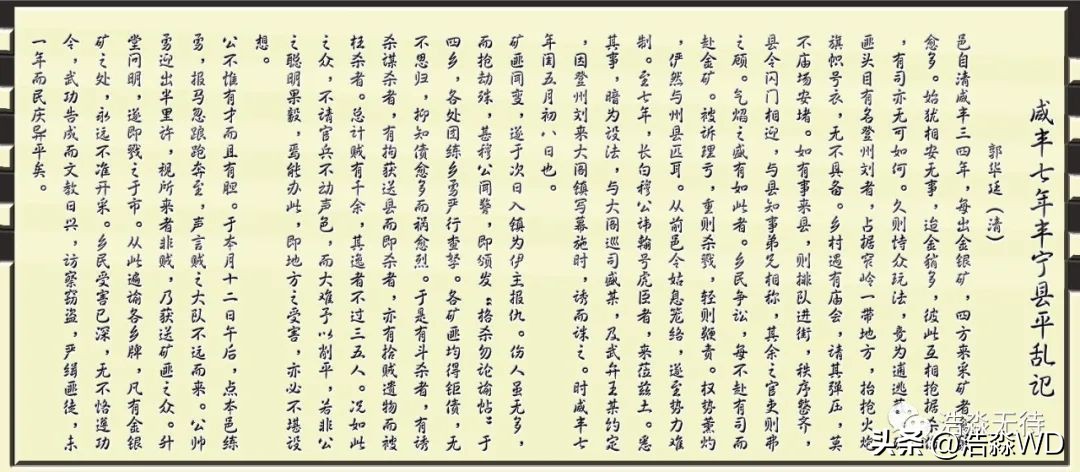 咸丰七年丰宁县平乱记
郭华廷（清）
邑自清咸丰三四年，每出金银矿，四方来采矿者
愈多。始犹相安无事，迨金销多，彼此互相抢据
，有司亦无可如何。久则恃众玩法，竟为逋逃
匪头目有名登州刘者，占据窄岭一带地方，抬抢火炮
旗帜号衣，无不具备。乡村遇有庙会，请其弹压，莫
不庙场安堵。如有事来县，则排队进街，秩序整齐，
县令闪门相迎，与县知事弟兄相称，其余之官吏则弗
之顾。气焰之盛有如此者。乡民争讼，每不赴有司而
赴金矿。被诉理亏，重则杀戮，轻则鞭责。权势薰灼
，俨然与州县匹耳。从前邑令姑息笼络，遂至势力难
制。至七年，长白穆公讳翰号虎臣者，来莅兹土。悉
其事，暗为设法，与大阁巡司盛某，及武弁王某约定
，因登州刘来大阁镇写募施时，诱而诛之。时咸丰七
年闰五月初八日也。
矿匪闻变，遂于次日入镇为伊主报仇。伤人虽无多，
而抢劫殊，甚穆公闻警，即颁发“格杀勿论谕帖”于
四乡，各处团练乡勇严行查拏。各矿匪均得钜债，无
不思归，抑知债愈多而祸愈烈。于是有斗杀者，有诱
杀谋杀者，有拘获送县而即杀者，亦有拾贼遗物而被
枉杀者。总计贼有千余，其逸者不过三五人。况如此
之众，不请官兵不动声色，而大难予以削平，若非公
之聪明果毅，焉能办此，即地方之受害，亦必不堪设
想。
公不惟有才而且有胆。于本月十二日午后，点本邑练
勇，报马忽踉跑奔至，声言贼之大队不远而来。公帅
勇迎出半里许，视所来者非贼，乃获送矿匪之众。升
堂问明，遂即戮之于市。从此遍谕各乡牌，凡有金银
矿之处，永远不准开采。乡民受害已深，无不恪遵功
令，武功告成而文教日兴，访察窃盗，严缉匪徒，未
一年而民庆昇平矣。
浩淼无待
头条@浩淼WD